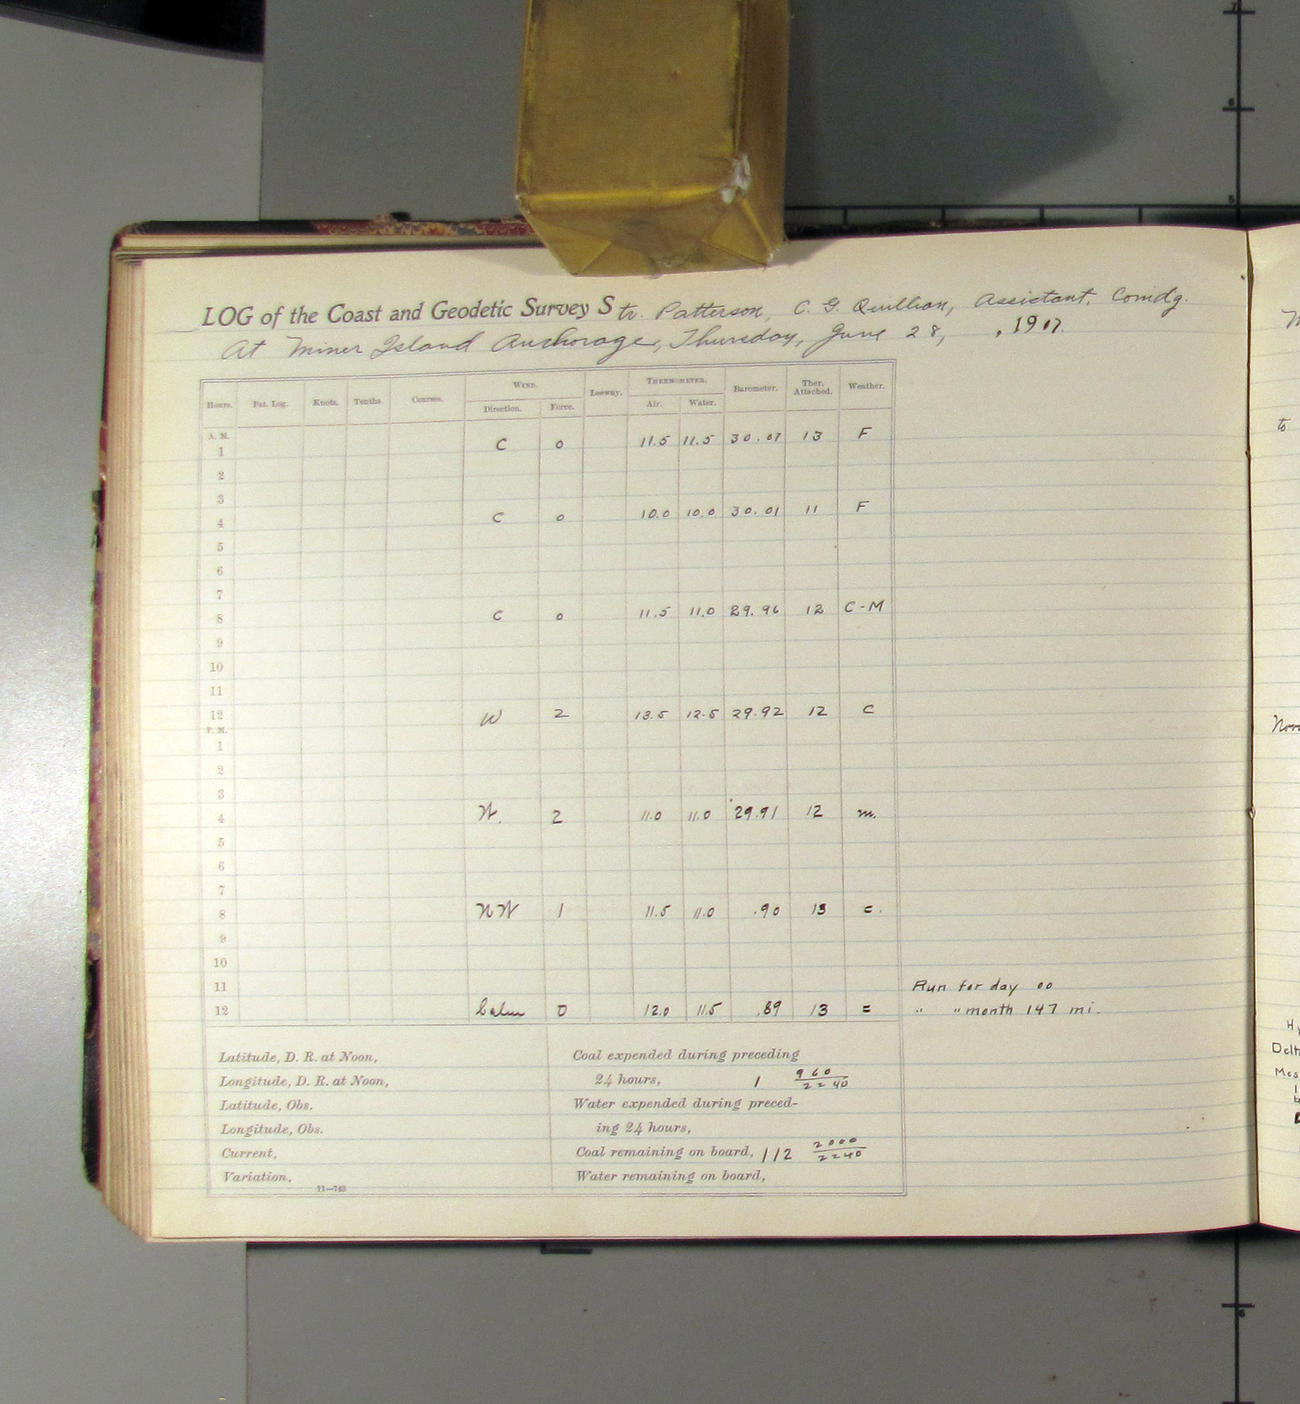 LOG of the Coast and Geodetic Survey Str. Patterson, C. G. Quillian, Assistant, Comdg.
At Miner Island Anchorage, Thursday, June 28, , 1917.
Hours. Pat. Log. Knots. Tenths. Courses. WIND. Direction. Force. Leeway. THERMOMETER. Air. Water. Barometer. Ther. Attached. Weather.
A. M.
1 C 0 11.5 11.5 30.07 13 F
2
3
4 C 0 10.0 10.0 30.01 11 F
5
6
7
8 C 0 11.5 11.0 29.96 12 C-M
9
10
11
12 W 2 13.5 12.5 29.92 12 C
P. M.
1
2
3
4 W. 2 11.0 11.0 29.91 12 m.
5
6
7
8 NW 1 11.5 11.0 .90 13 c.
9
10
11 Run for day 00
12 Calm 0 12.0 11.5 .89 13 = " " month 147 mi.
Latitude, D. R. at Noon, Coal expended during preceding
Longitude, D. R. at Noon, 24 hours, 1 960/2240
Latitude, Obs. Water expended during preced-
Longitude, Obs. ing 24 hours,
Current, Coal remaining on board, 112 2000/2240
Variation, Water remaining on board,
11—743
to